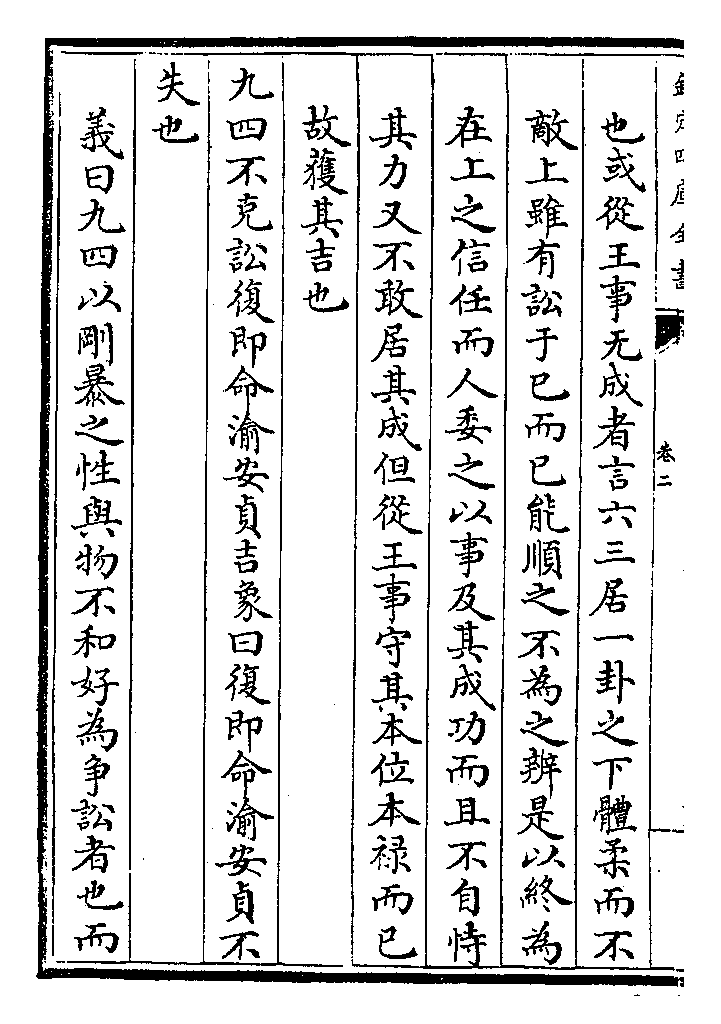 欽定四庫全書
卷二
也或從王事无成者言六三居一卦之下體柔而不
敵上雖有訟于已而已能順之不為之辨是以終為
在上之信任而人委之以事及其成功而且不自恃
其力又不敢居其成但從王事守其本位本禄而已
故獲其吉也
九四不克訟復即命渝安貞吉象曰復即命渝安貞不
失也
義曰九四以剛暴之性與物不和好為争訟者也而